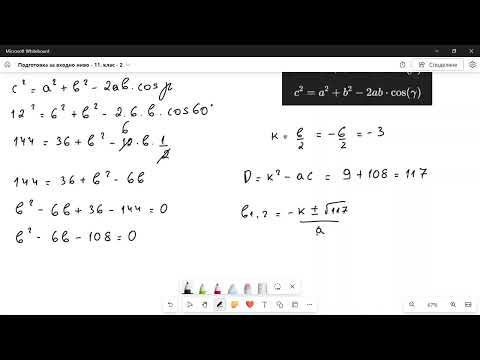 Microsoft Whiteboard
Подготовка за входно ниво - 11. клас - 2
Споделяне
c² = a² + b² - 2ab.cosγ
12² = 6² + b² - 2.6.b.cos60°
144 = 36 + b² - 12.b.1/2
6
144 = 36 + b² - 6b
b² - 6b + 36 - 144 = 0
b² - 6b - 108 = 0
c² = a² + b² - 2ab · cos(γ)
K = b/2 = -6/2 = -3
D = K² - ac = 9 + 108 = 117
b₁,₂ = -K ± √117 / a
67%